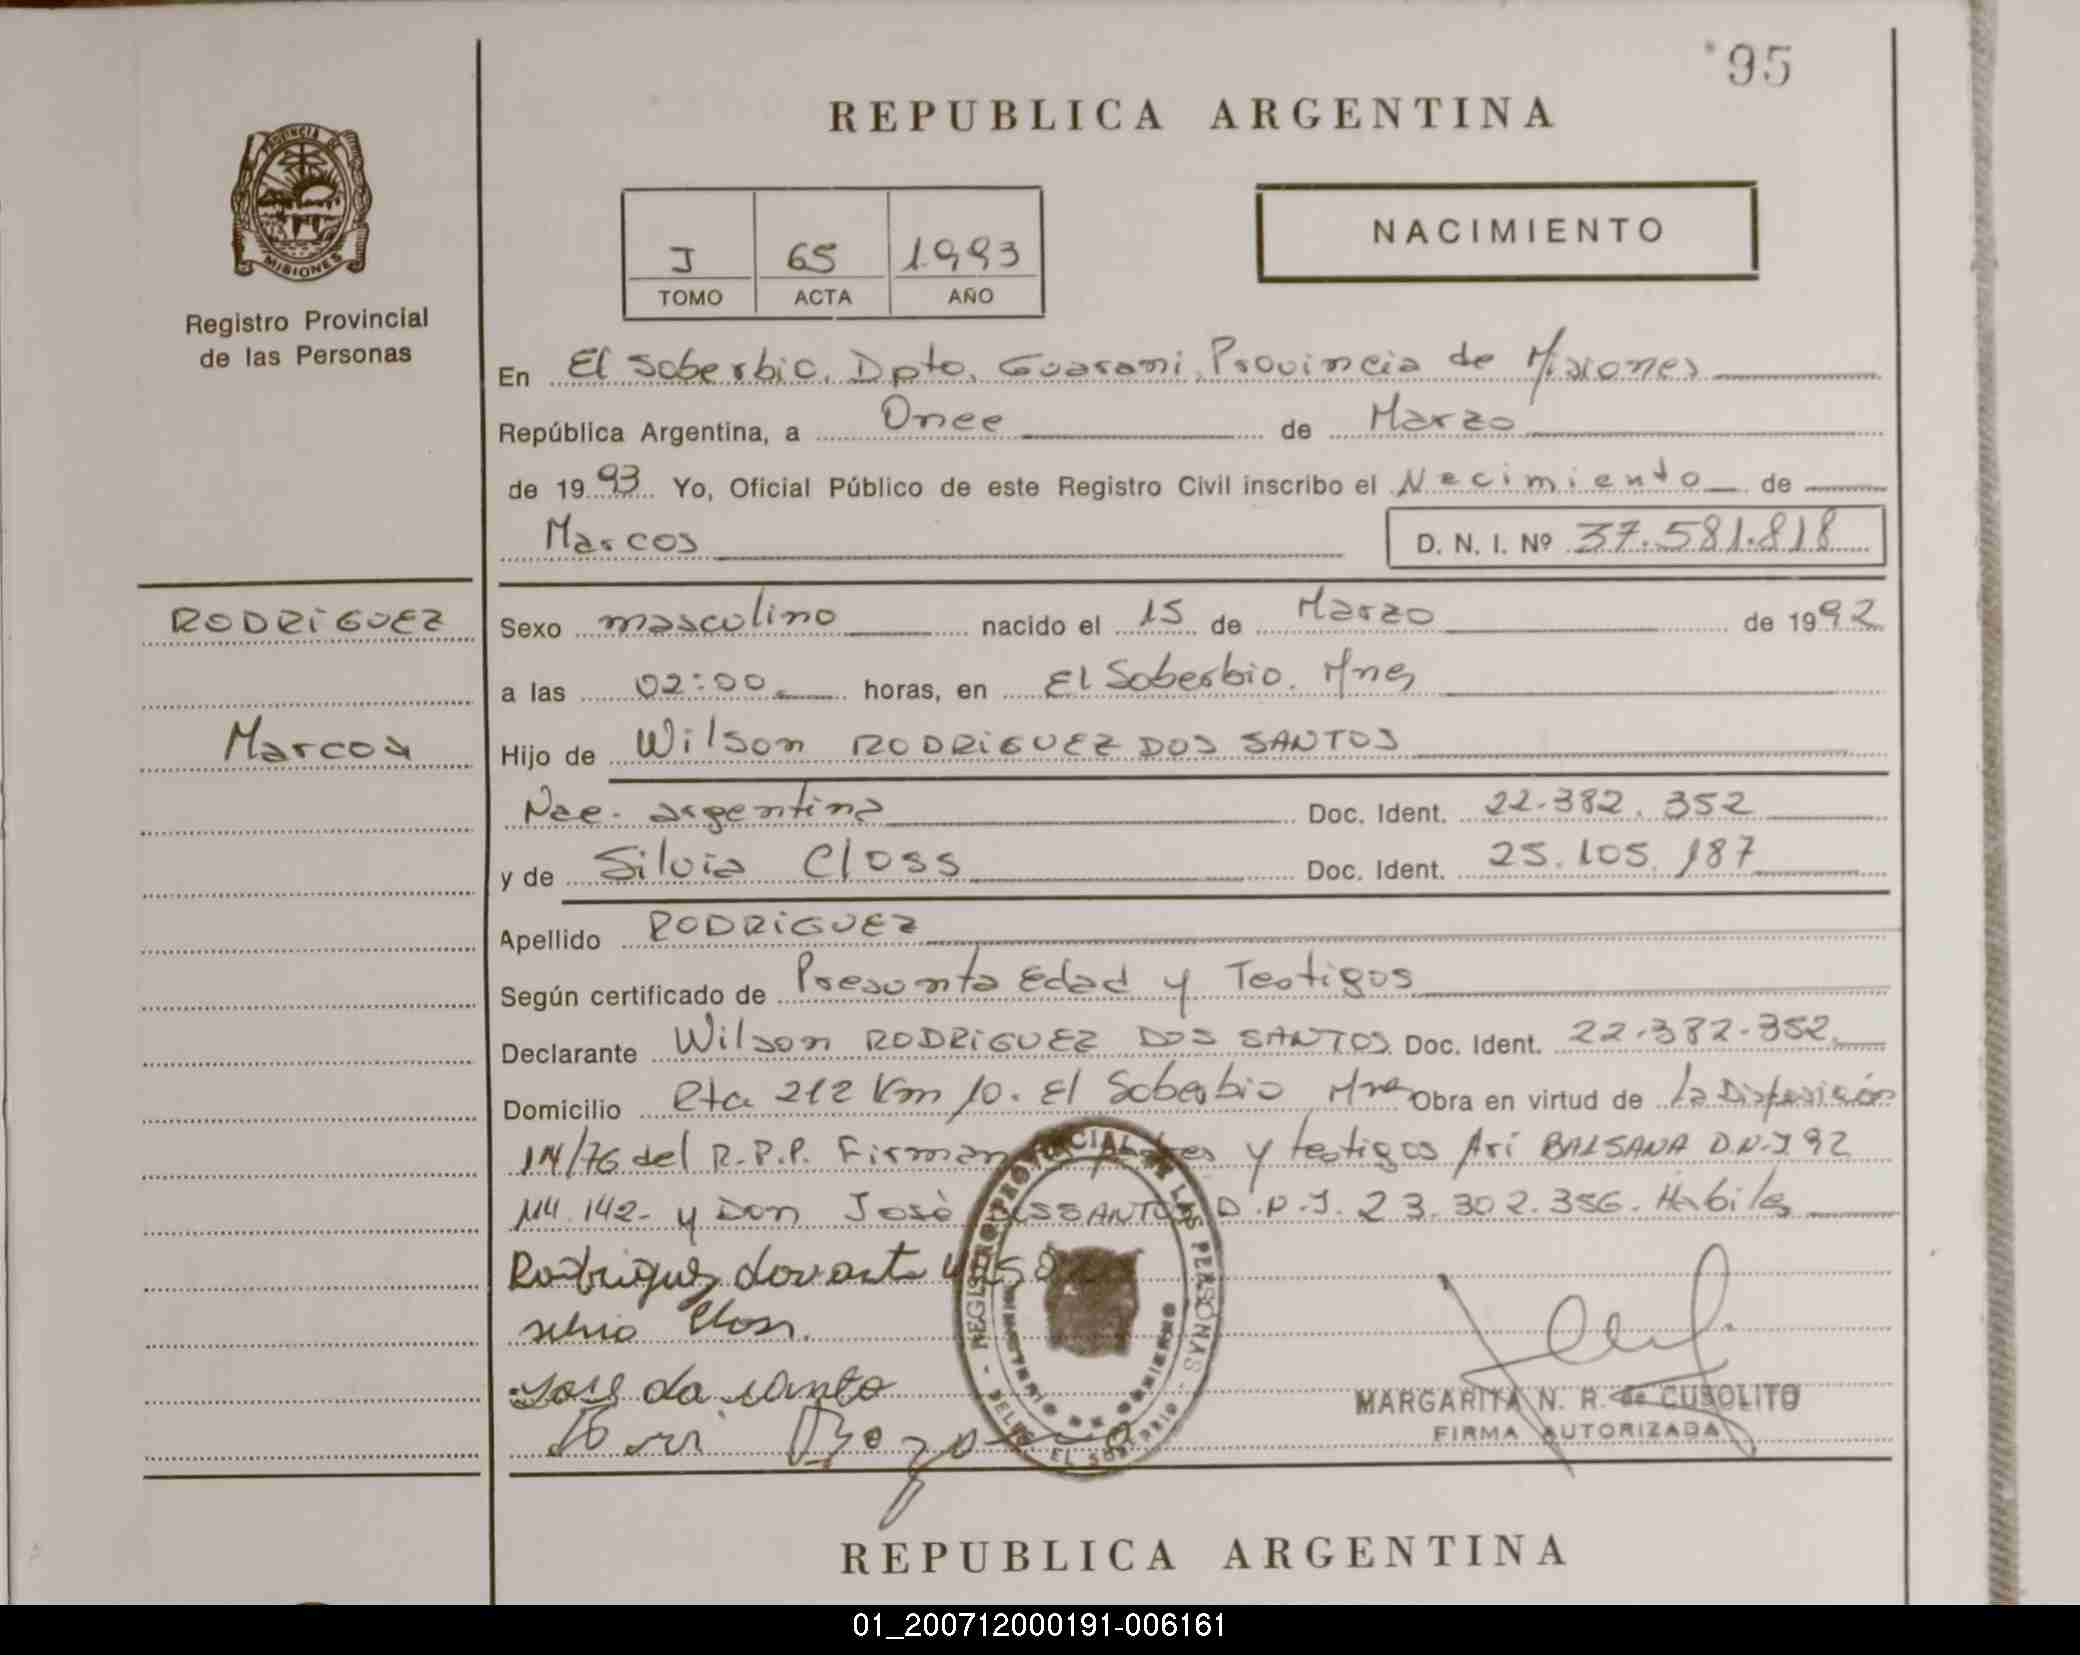 95
REPUBLICA ARGENTINA
PROVINCIA DE MISIONES
Registro Provincial
de las Personas
J 65 1993
TOMO ACTA AÑO
NACIMIENTO
En El Soberbio, Dpto. Guarani, Provincia de Misiones
República Argentina, a Once de Marzo
de 1993 Yo, Oficial Público de este Registro Civil inscribo el Nacimiento de
Marcos D. N. I. Nº 37.581.818
RODRIGUEZ
Marcos
Sexo masculino nacido el 15 de Marzo de 1992
a las 02:00 horas, en El Soberbio. Mnes
Hijo de Wilson RODRIGUEZ DOS SANTOS
Nac. argentina Doc. Ident. 22.382.352
y de Silvia Closs Doc. Ident. 25.105.187
Apellido RODRIGUEZ
Según certificado de Presunta Edad y Testigos
Declarante Wilson RODRIGUEZ DOS SANTOS Doc. Ident. 22.382.352
Domicilio Rta 212 Km 10. El Soberbio Mnes Obra en virtud de la Disposición
/76 del R.P.P. Firman y testigos Ari BALSANA D.N.I 92
114.142- y Don José D.N.I. 23.302.356. Habiles
REGISTRO PROVINCIAL DE LAS PERSONAS
MINISTERIO DE GOBIERNO
MARGARITA N. R. de CUBOLITO
FIRMA AUTORIZADA
REPUBLICA ARGENTINA
01_200712000191-006161